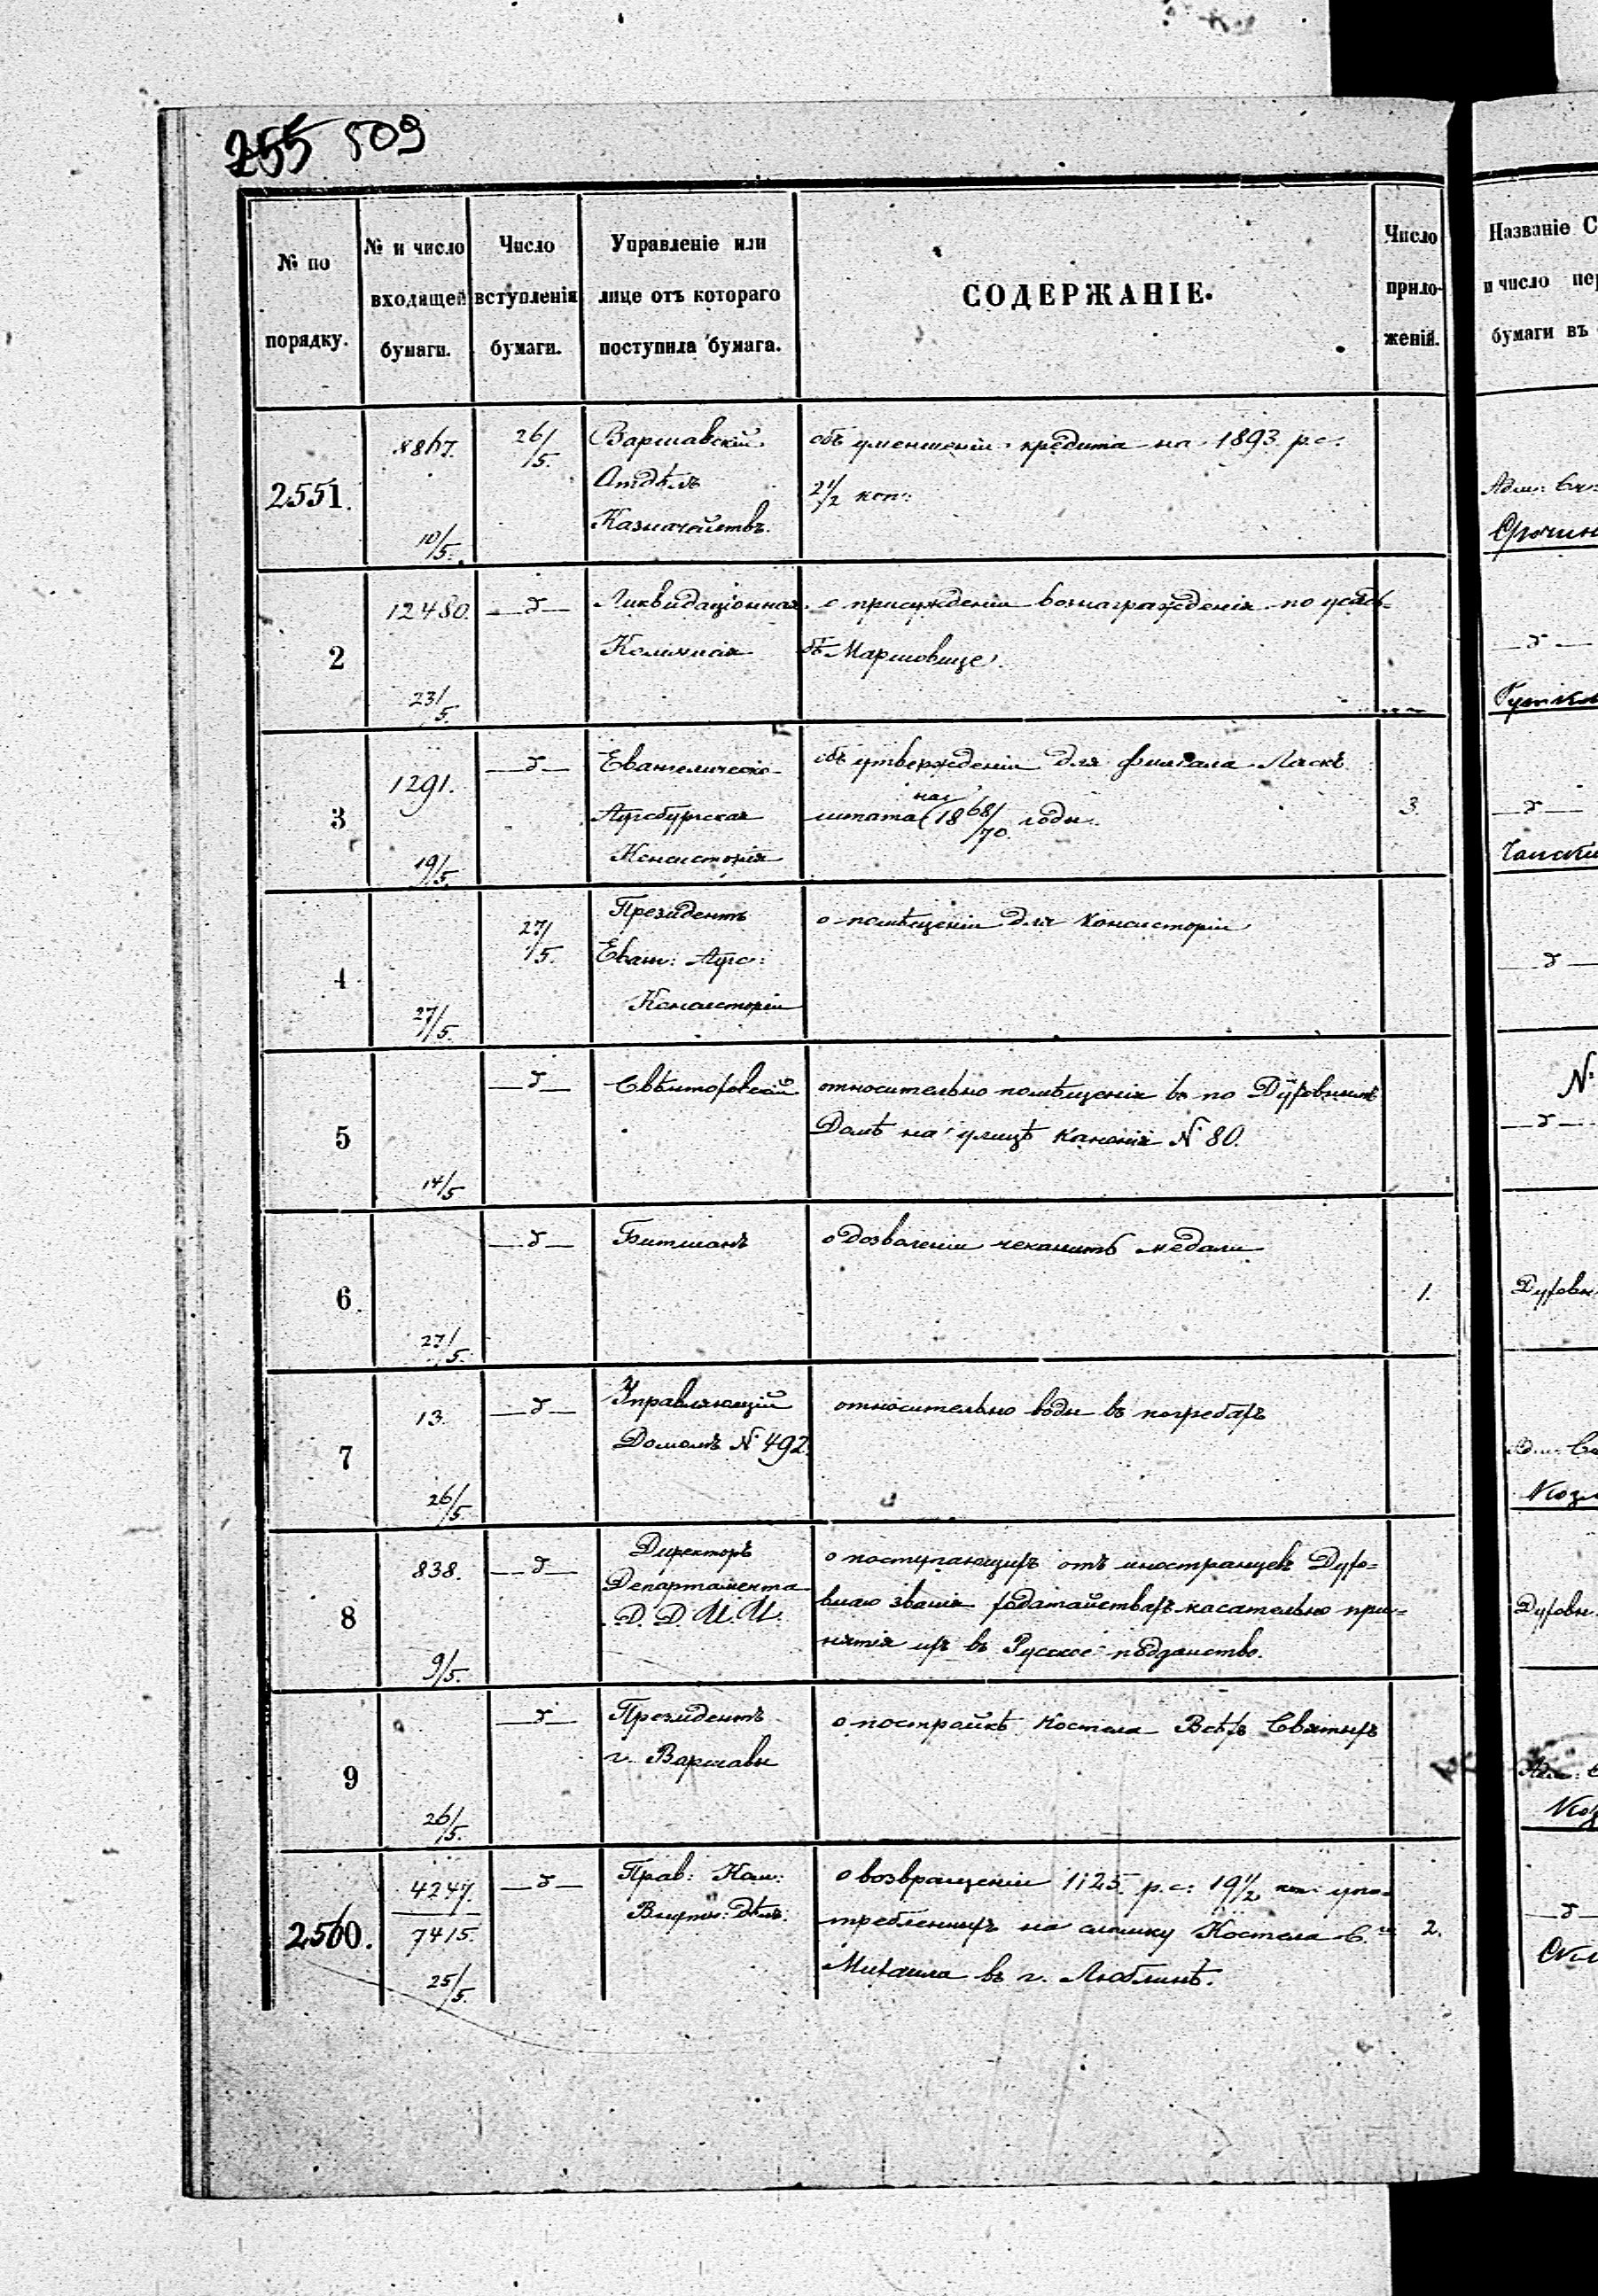 255 509
№ по порядку.
№ и число входящей бумаги.
Число вступленія бумаги.
Управленіе или лице отъ котораго поступила бумага.
СОДЕРЖАНІЕ.
Число прило- женій.
Названіе С
и число пер
бумаги въ
2551.
8867.
10/5.
26/5.
Варшавскій
Отдѣлъ
Казначействъ.
объ уменшеніи кредита на 1893 р. с.
2 1/2 коп:
Адм:
2
12480.
23/5.
— д —
Ликвидаціонная
Коммисія
о присужденіи вознагражденія по усадь-
бѣ Маршовице.
— д —
3
1291.
19/5.
— д —
Евангелическо-
Аугсбургская
Консисторія
объ утвержденіи для филіала Ласкъ
штата на 1868/70 годы.
3.
— д —
4
27/5.
27/5.
Президентъ
Еванг: Аугс:
Консисторіи
о помѣщеніи для Консисторіи
— д —
5
14/5
— д —
относительно помѣщенія въ по Духовныхъ
Домѣ на улицѣ Каноніи N 80.
N:
— д —
6
27/5.
— д —
Битманъ
о дозволеніи чеканить медали
1.
Духовн
7
13.
26/5.
— д —
Управляющій
Домомъ N 492.
относительно воды въ погребахъ
8
838.
9/5.
— д —
Директоръ
Департамента
Д. Д. И. И.
о поступающихъ отъ иностранцевъ Духо-
внаго званія ходатайствахъ касательно при-
нятія ихъ въ Русское подданство.
Духовн.
9
26/5.
— д —
Президентъ
г. Варшавы
о постройкѣ Костела Всѣхъ Святыхъ
2560.
4247.
7415.
25/5.
— д —
Прав: Ком:
Внутр: Дѣлъ:
о возвращеніи 1125 р. с: 19 1/2 коп: упо-
требленныхъ на сломку Костела Св.
Михаила въ г. Люблинѣ.
2.
— д —